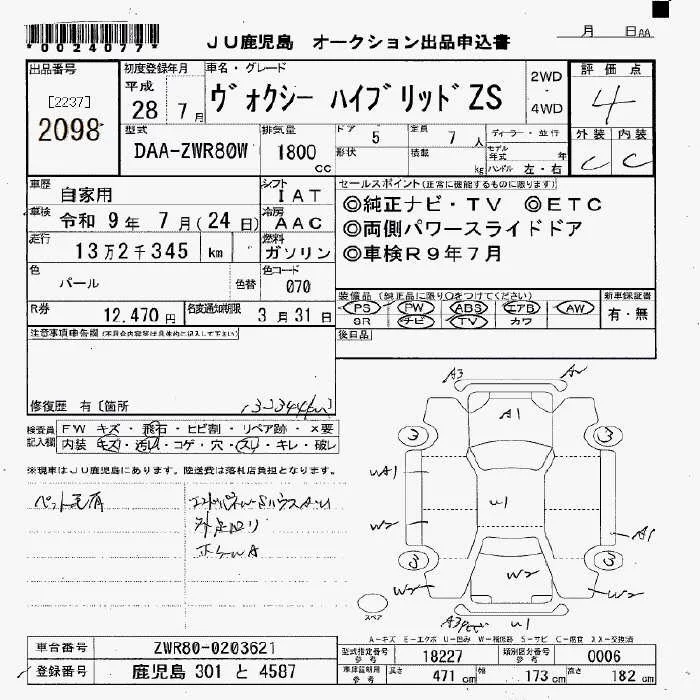 *0024077*
JU鹿児島 オークション出品申込書
月 日 AA
出品番号
[2237]
2098
初度登録年月
平成
28 7月
車名・グレード
ヴォクシー ハイブリッドZS
2WD
・
4WD
評価点
4
外装 内装
C C
型式
DAA-ZWR80W
排気量
1800
cc
ドア 5
定員 7人
形状
積載 kg
ディーラー・並行
モデル年式 年
ハンドル 左・右
車歴
自家用
シフト
IAT
車検 令和 9年 7月(24日)
冷房
AAC
走行
13万2千345 km
燃料
ガソリン
色
パール
色替
色コード
070
R券
12,470円
名変通知期限
3月31日
セールスポイント(正常に機能するものに限ります)
◎純正ナビ・TV ◎ETC
◎両側パワースライドドア
◎車検R9年7月
装備品(純正品に限り○をつけてください)
PS PW ABS エアB AW
SR ナビ TV カワ
新車保証書
有・無
後日品
注意事項申告欄
修復歴 有〔箇所
検査員記入欄
FW キズ・飛石・ヒビ割・リペア跡・×要
内装・キズ・汚れ・コゲ・穴・スレ・キレ・破レ
※現車はJU鹿児島にあります。陸送費は落札店負担となります。
A3
A1
3 3
UA1
W2
U1
A1
3 3
W2
W2
W2
U1
スペア
A-キズ E-エクボ U-凹み W-補修跡 S-サビ C-腐食 XX-交換済
車台番号 ZWR80-0203621
登録番号 鹿児島 301 と 4587
型式指定番号 参考 18227
類別区分番号 参考 0006
車庫証明用 参考 長さ 471cm 幅 173cm 高さ 182cm